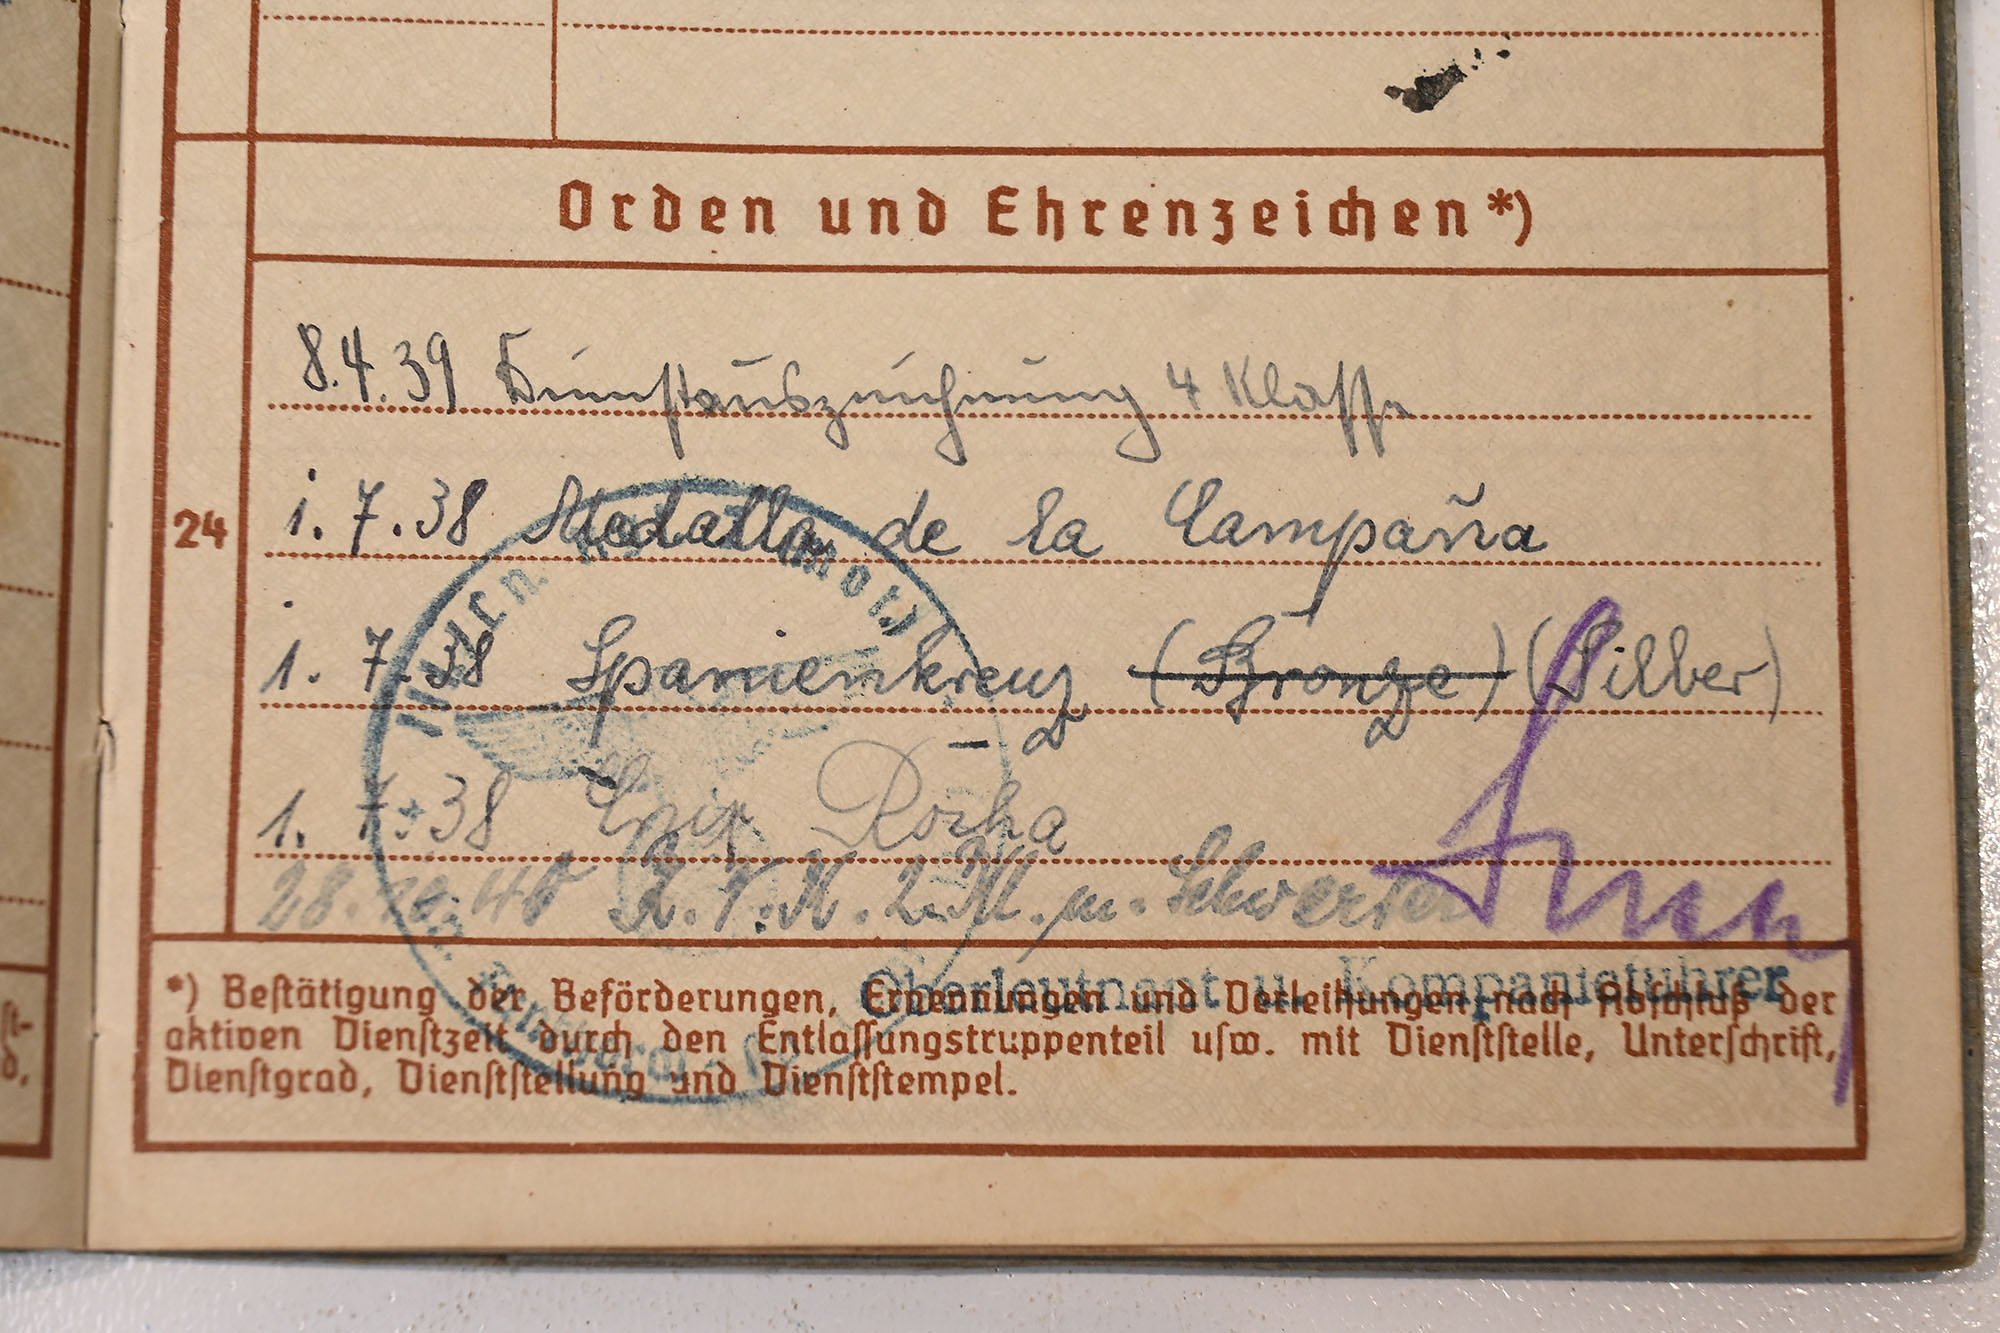 Orden und Ehrenzeichen *)
8.4.39 Dienstauszeichnung 4 Klasse
24
1.7.38 Medalla de la Campaña
1.7.38 Spanienkreuz (Bronze) (Silber)
1.7.38 Cruz Rocha
28. 40 K.V.K. 2. Kl. m. Schwerter
Oberleutnant u. Kompanieführer
*) Bestätigung der Beförderungen, Ernennungen und Verleihungen nach Abschluß der
aktiven Dienstzeit durch den Entlassungstruppenteil usw. mit Dienststelle, Unterschrift,
Dienstgrad, Dienststellung und Dienststempel.